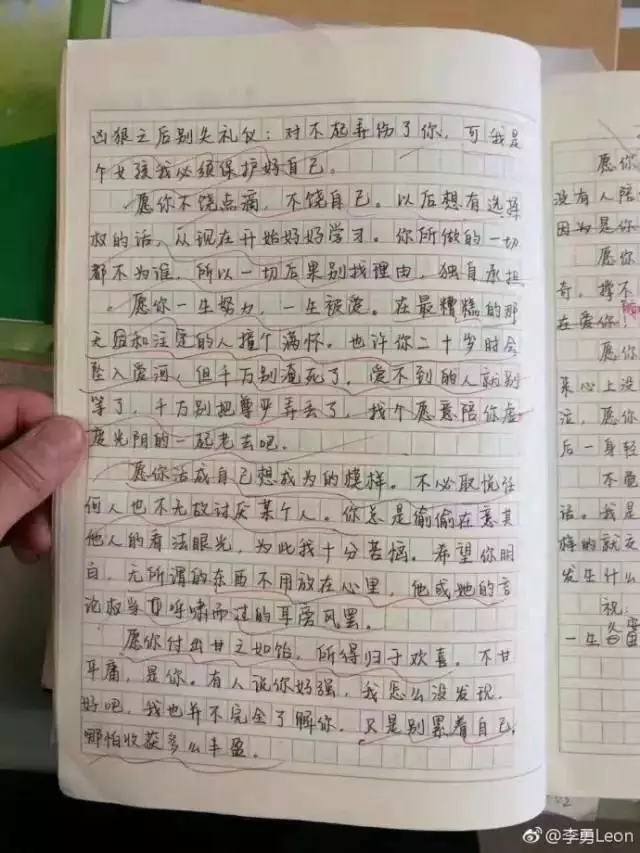 凶狠之后别失礼仪：对不起弄伤了你，可我是
个女孩我必须保护好自己。
愿你不饶点滴，不饶自己。以后想有选择
权的话，从现在开始好好学习。你所做的一切
都不为谁，所以一切后果别找理由，独自承担
愿你一生努力，一生被爱。在最糟糕的那
天和注定的人撞个满怀。也许你二十岁时会
坠入爱河，但千万别淹死了，爱不到的人就别
等了，千万别把尊严弄丢了，找个愿意陪你虚
度光阴的一起老去吧。
愿你活成自己想成为的模样。不必取悦任
何人也不无故讨厌某个人。你总是偷偷在意其
他人的看法眼光，为此我十分苦恼。希望你明
白，无所谓的东西不用放在心里，他或她的言
论权当呼啸而过的耳旁风罢。
愿你付出甘之如饴，所得归于欢喜。不甘
平庸，是你。有人说你好强，我怎么没发现，
好吧，我也并不完全了解你，只是别累着自己，
哪怕收获多么丰盈。
愿你
没有人陪
因为是你
愿你
奇，撑不
在爱你！
愿你
来心上没
泣，愿你
后一身轻
不
话。我是
的就
发生什么
祝：
一生
@李勇Leon